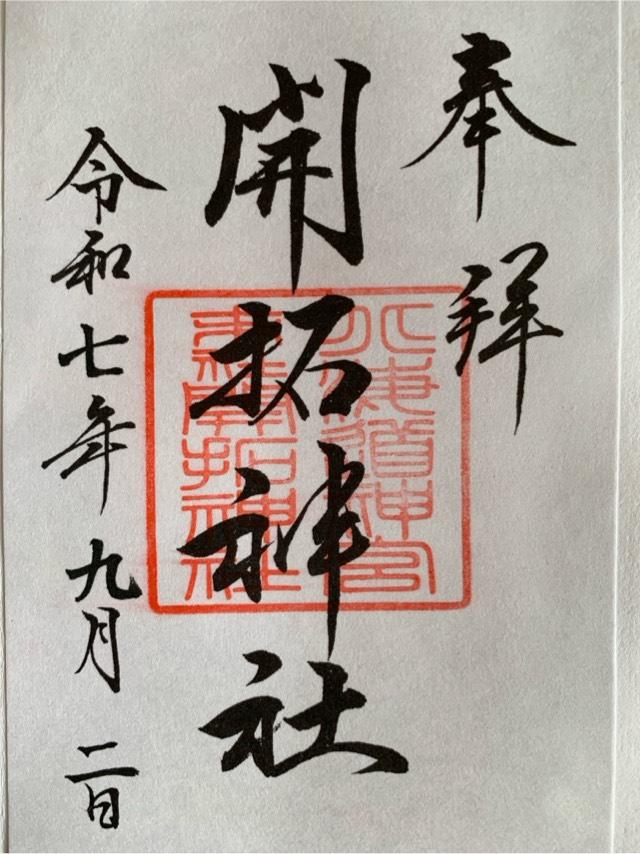 奉拝
開拓神社
北海道神宮
末社開拓神社
令和七年九月二日